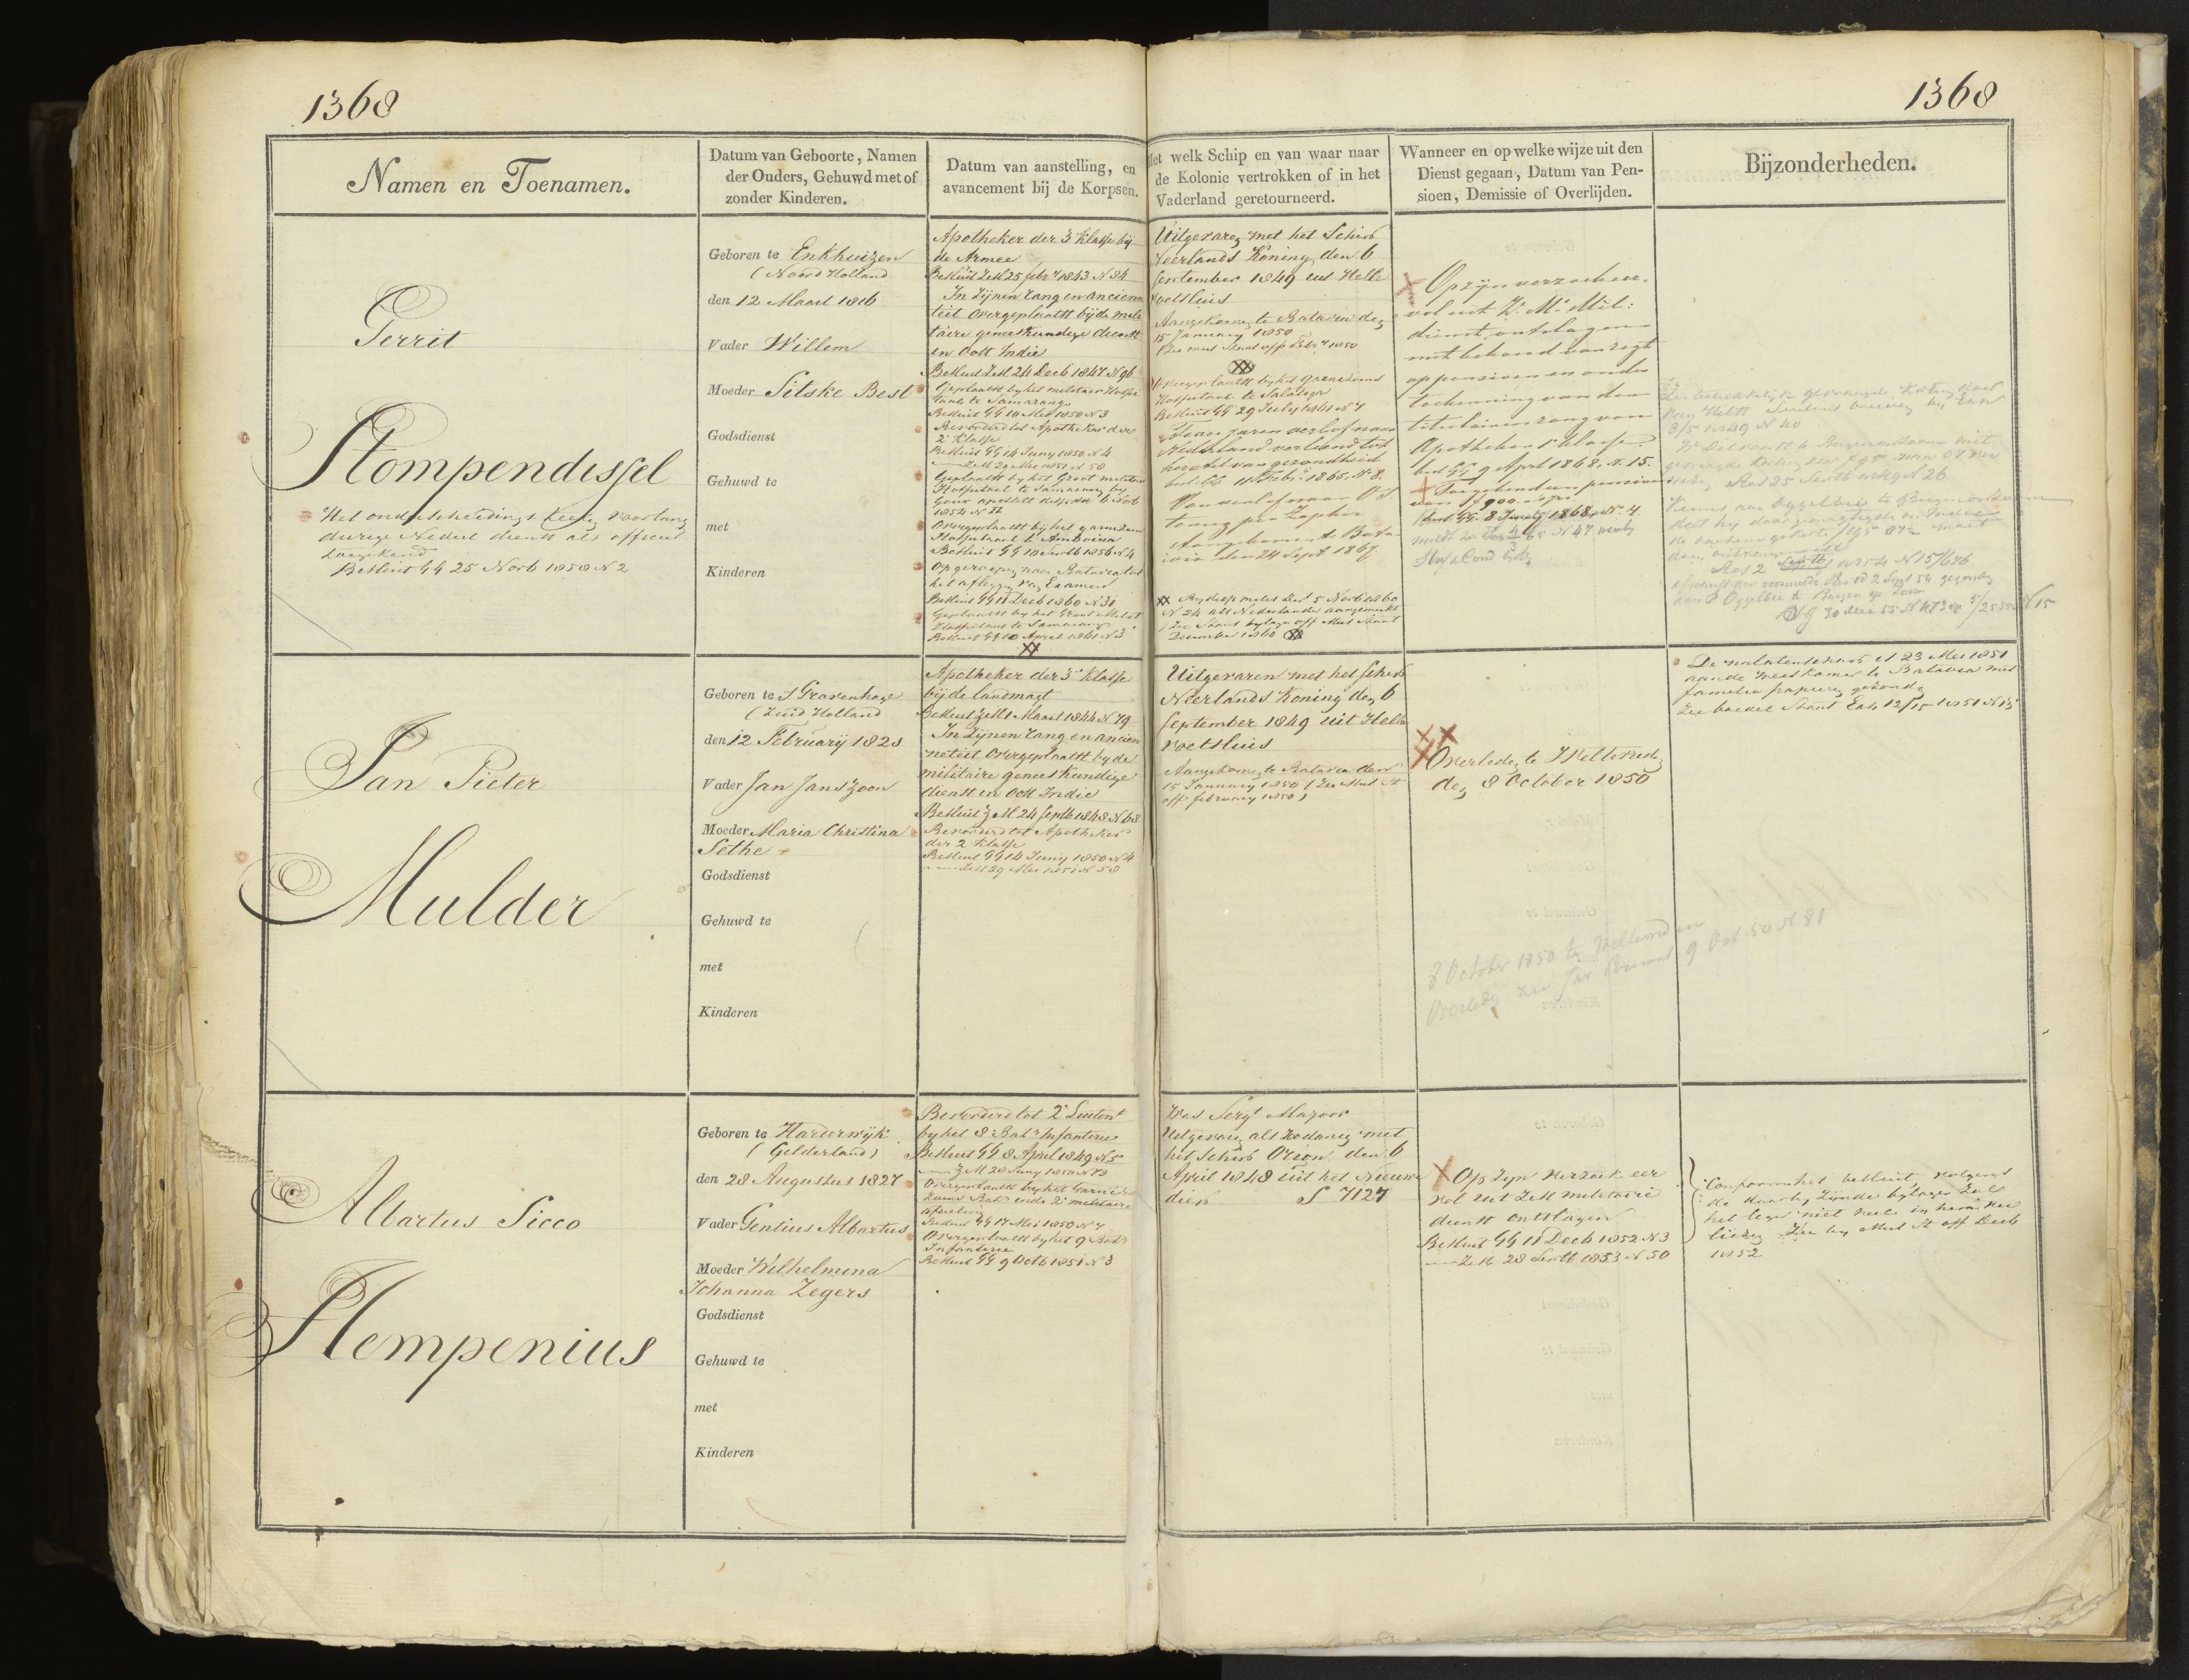 1368
1368
Namen en Toenamen.
Datum van Geboorte, Namen
der Ouders, Gehuwd met of
zonder Kinderen.
Datum van aanstelling, en
avancement bij de Korpsen.
Met welk Schip en van waar naar
de Kolonie vertrokken of in het
Vaderland geretourneerd.
Wanneer en op welke wijze uit den
Dienst gegaan, Datum van Pen-
sioen, Demissie of Overlijden.
Bijzonderheden.
Gerrit
Stompendissel
Het onderscheidings teeken voor lang
durige Nederl dienst als officier
toegekend
Besluit GG 25 Novb 1858 N 2
Geboren te Enkhuizen
(Noord Holland
den 12 Maart 1816
Vader Willem
Moeder Sitske Best
Godsdienst
Gehuwd te
met
Kinderen
Apotheker der 3e Klasse bij
de Armee
Besluit ZM 25 febry 1843 N 84
In zijnen rang en ancienni
teit overgeplaatst bij de mili
taire geneeskundige dienst
in Oost Indie
Besluit ZM 24 Decb 1847 N 96
Geplaatst by het militair Hospi
taal te Samarang
Besluit GG 10 Mei 1850 N 3
Bevorderd tot Apotheker der
2e Klasse
Besluit GG 14 Juny 1850 N 4
ZM 29 Mei 1851 N 58
Geplaatst by het Groot militair
Hospitaal te Samarang
1854 N 22
Overgeplaatst bij het garnizoens
Hospitaal te Amboina
Besluit GG 10 1856 N 4
Opgeroepen naar Batavia tot
het afleggen van Examen
Besluit GG 11 Decb 1860 N 31
Geplaatst by het Groot Milit
Hospitaal te Samarang
Besluit GG 10 April 1861 N 3
XX
Uitgevaren met het Schip
Neerlands Koning den 6
September 1849 uit Helle
voetsluis
Aangekomen te Batavia den
15 January 1850
(Zie mut Staat off Febry 1850
XX
Overgeplaatst by het garnizoens
Hospitaal te Salatiga
Besluit GG 29 July 1861 N 7
Twee jaren verlof naar
Nederland verleend tot
herstel van gezondheid
besl. GG 11 Febr. 1865. N. 8.
Van verlof naar O I.
terug per Zephir
Aangekomen te Bata-
via den 24 Sept 1867.
XX 5 Novb 1860
N 24 als Nederlander aangemerkt
(Zie Staat bylage off Mut Staat
December 1860 XX
X Op zijn verzoek eer-
vol uit Zr. Ms. Mil:
dienst ontslagen
met behoud van regt
op pensioen en onder
toekenning van den
titulairen rang van
Apotheker 1e klasse.
besl GG 9 April 1868, N. 15.
Toegekend een pensioen
van ƒ 900.- 's jrs.
Besl GG. 8 Juny 1868 N. 4.
Aos 25 Septb N 26
Aos 2 Septb 1854 N 15/646
30 Dec 55 N 473
Jan Pieter
Mulder
Geboren te S Gravenhage
(Zuid Holland
den 12 February 1823
Vader Jan Janszoon
Moeder Maria Christina
Sethe
Godsdienst
Gehuwd te
met
Kinderen
Apotheker der 3e Klasse
bij de landmagt
Besluit ZM 1 Maart 1844 N 79
In zijnen rang en ancien
neteit overgeplaatst by de
militaire geneeskundige
dienst in Oost Indie
Besluit ZM 24 Septb 1848 N 68
Bevorderd tot Apotheker
der 2 Klasse
Besluit GG 14 Juny 1850 N 4
ZM 29 Mei 1851 N 58
Uitgevaren met het schip
Neerlands Koning den 6
September 1849 uit Helle
voetsluis
Aangekomen te Batavia den
15 January 1850 (Zie Mut St
off february 1850)
XX
X Overleden te Weltevreden
den 8 October 1850
8 October 1850 te Weltevreden
Overleden zie 9 Oct 50 N 81
De nalatenschap is 23 Mei 1851
aan de Weeskamer te Batavia met
familie papieren gezonden
Zie boedel Staat
Albartus Sicco
Hempenius
Geboren te Harderwijk
(Gelderland)
den 28 Augustus 1827
Vader Gentius Albartus
Moeder Wilhelmina
Johanna Zegers
Godsdienst
Gehuwd te
met
Kinderen
Bevorderd tot 2e Luitent
by het 8e Batn Infanterie
Besluit GG 8 April 1849 N 5
ZM 28 Juny 1850 N 73
Overgeplaatst by het Garni
zoens Batn in de 2e militaire
afdeeling
Besluit GG 17 Mei 1850 N 4
Overgeplaatst by het 9 Batn
Infanterie
Besluit GG 9 Octb 1851 N 3
Was Sergt Majoor
Uitgevaren als zodanig met
het Schip Orion den 6
April 1848 uit het Nieuwe
diep S 7127
X Op zyn verzoek eer
vol uit ZM militaire
dienst ontslagen
Besluit GG 11 Decb 1852 N 3
ZM 28 Septb 1853 N 50
Conform het besluit, volgens
de daarby zynde bylagen zal
het leger niet veel in hem ver
liezen Zie by Mut St off Decb
1852